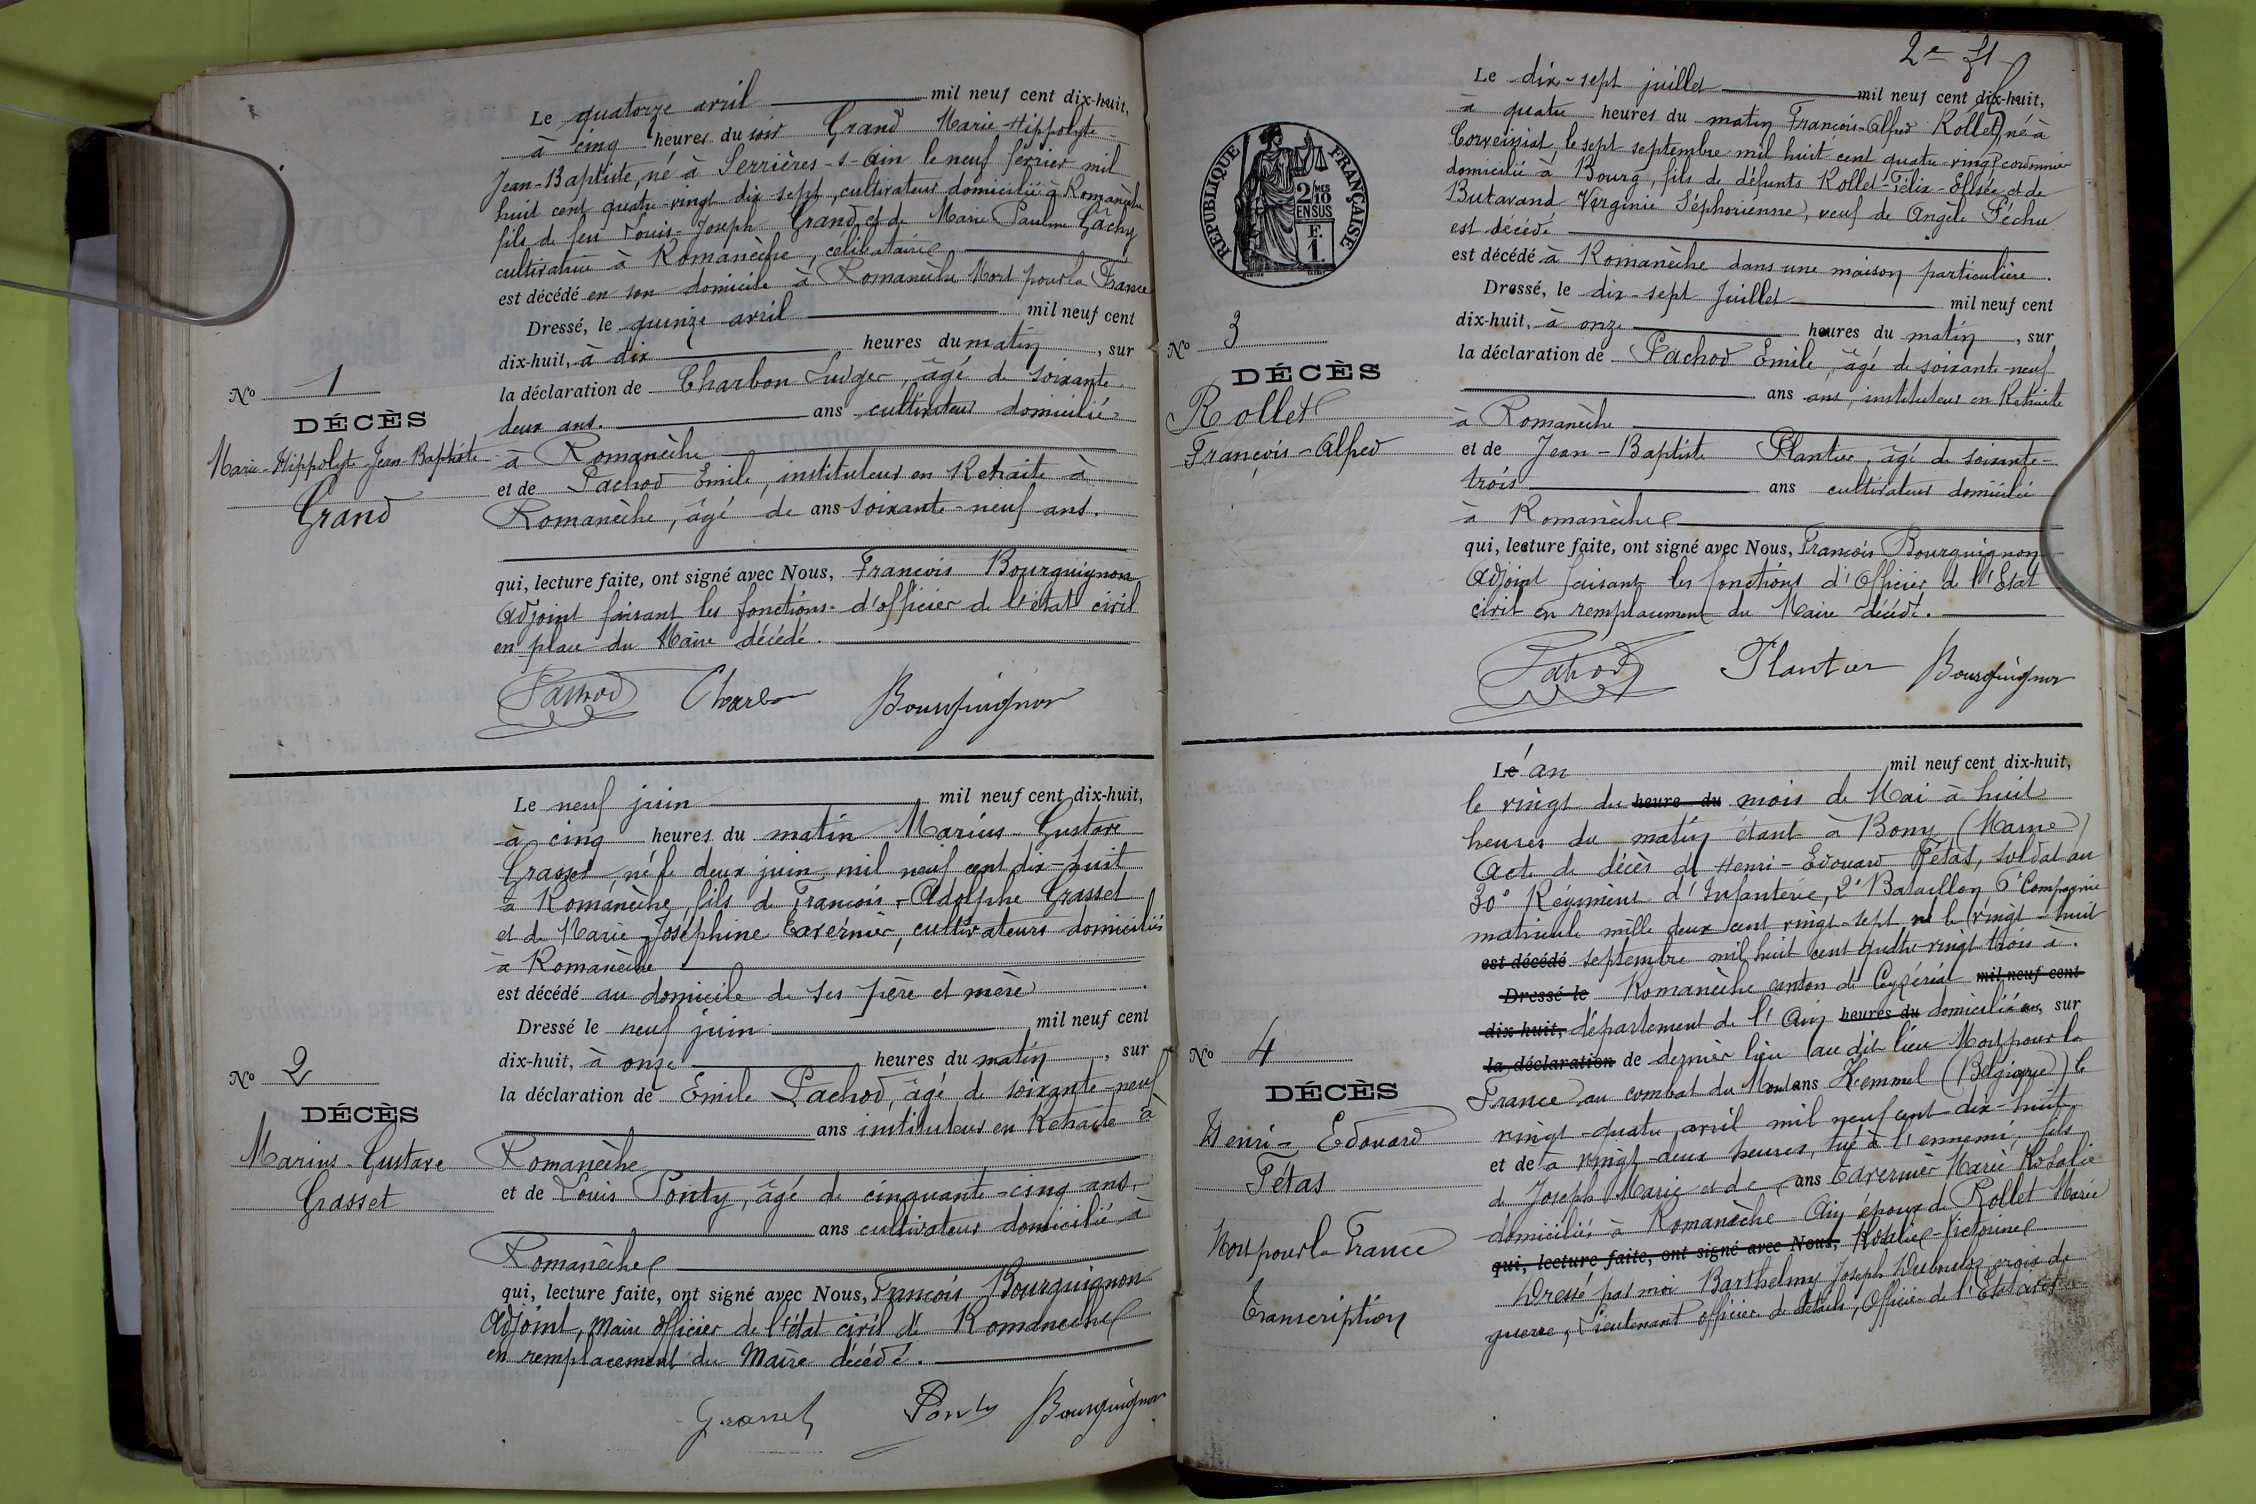 Le quatorze avril mil neuf cent dix-huit,
à cinq heures du soir Grand Marie Hippolyte
Jean-Baptiste, né à Serrières-s-Ain le neuf février mil
huit cent quatre-vingt dix sept, cultivateur domicilié à Romanèche
fils de feu Louis-Joseph Grand et de Marie Pauline Gâchy
cultivatrice à Romanèche, célibataire
est décédé en son domicile à Romanèche Mort pour la France
Dressé, le quinze avril mil neuf cent
dix-huit, à dix heures du matin, sur
la déclaration de Charbon Ludger, âgé de soixante
deux ans. ans cultivateur domicilié
à Romanèche
et de Pachod Emile, instituteur en Retraite à
Romanèche, âgé de ans soixante-neuf ans.
qui, lecture faite, ont signé avec Nous, François Bourguignon
Adjoint faisant les fonctions d'officier de l'état civil
en place du Maire décédé.
Pachod Charbon Bourguignon
No 1
DÉCÈS
Marie-Hippolyte Jean Baptiste
Grand
Le neuf juin mil neuf cent dix-huit,
à cinq heures du matin Marius-Gustave
Grasset né le deux juin mil neuf cent dix-huit
à Romanèche, fils de François-Adolphe Grasset
et de Marie-Joséphine Tavernier, cultivateurs domiciliés
à Romanèche
est décédé au domicile de ses père et mère
Dressé le neuf juin mil neuf cent
dix-huit, à onze heures du matin, sur
la déclaration de Emile Pachod, âgé de soixante-neuf
ans instituteur en Retraite à
Romanèche
et de Louis Ponty, âgé de cinquante-cinq ans
ans cultivateur domicilié à
Romanèche
qui, lecture faite, ont signé avec Nous, François Bourguignon
Adjoint, Maire officier de l'état civil de Romanèche
en remplacement du Maire décédé.
Ponty Bourguignon
No 2
DÉCÈS
Marius-Gustave
Grasset
2e
RÉPUBLIQUE FRANÇAISE
2 MES
10
EN SUS
F.
1.
Le dix-sept juillet mil neuf cent dix-huit,
à quatre heures du matin François-Alfred Rollet, né à
Corveissiat, le sept septembre mil huit cent quatre-vingt cordonnier
domicilié à Bourg, fils de défunts Rollet-Félix-Elisée et de
Butavand Virginie Séphorienne, veuf de Angèle Péchu
est décédé
est décédé à Romanèche dans une maison particulière.
Dressé, le dix-sept Juillet mil neuf cent
dix-huit, à onze heures du matin, sur
la déclaration de Pachod Emile, âgé de soixante-neuf
ans ans, instituteur en Retraite
à Romanèche
et de Jean-Baptiste Plantier, âgé de soixante-
trois ans cultivateur domicilié
à Romanèche
qui, lecture faite, ont signé avec Nous, François Bourguignon
Adjoint faisant les fonctions d'Officier de l'Etat
civil en remplacement du Maire décédé.
Pachod Plantier Bourguignon
No 3
DÉCÈS
Rollet
François-Alfred
Le an mil neuf cent dix-huit,
le vingt du heure du mois de Mai à huit
heures du matin étant à Bony (Marne)
Acte de décès de Henri-Edouard Pétas, soldat au
30e Régiment d'Infanterie, 2e Bataillon 6e Compagnie
matricule mille deux cent vingt-sept né le vingt-huit
est décédé septembre mil huit cent quatre-vingt trois à
Dressé le Romanèche canton de Ceyzériat mil neuf cent
dix-huit, département de l'Ain heures du domicilié en, sur
la déclaration de dernier lieu au dit lieu Mort pour la
France au combat du Mont ans Kemmel (Belgique) le
vingt-quatre avril mil neuf cent dix-huit
et de à vingt-deux heures, tué à l'ennemi, fils
de Joseph Marie et de ans Tavernier Marie Rosalie
domiciliés à Romanèche Ain époux de Rollet Marie
qui, lecture faite, ont signé avec Nous, Rosalie-Victorine
Dressé par moi Barthelmy Joseph croix de
guerre, Lieutenant officier de détails, Officier de l'Etat civil
No 4
DÉCÈS
Henri-Edouard
Pétas
Mort pour la France
Transcription